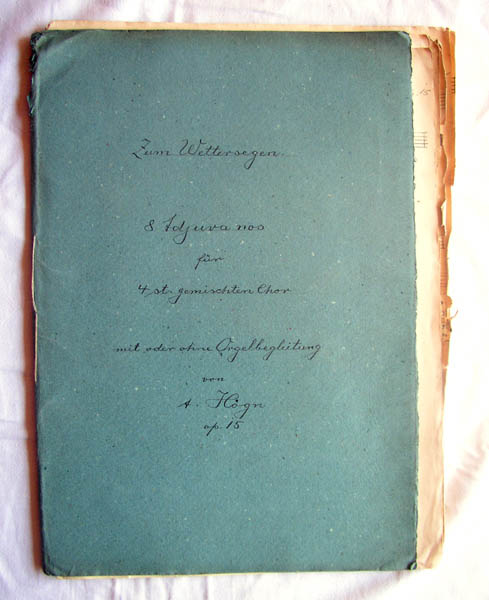 Zum Wettersegen.
8 Adjuva nos
für
4 st. gemischten Chor
mit oder ohne Orgelbegleitung
von
A. Högn
op. 15
15